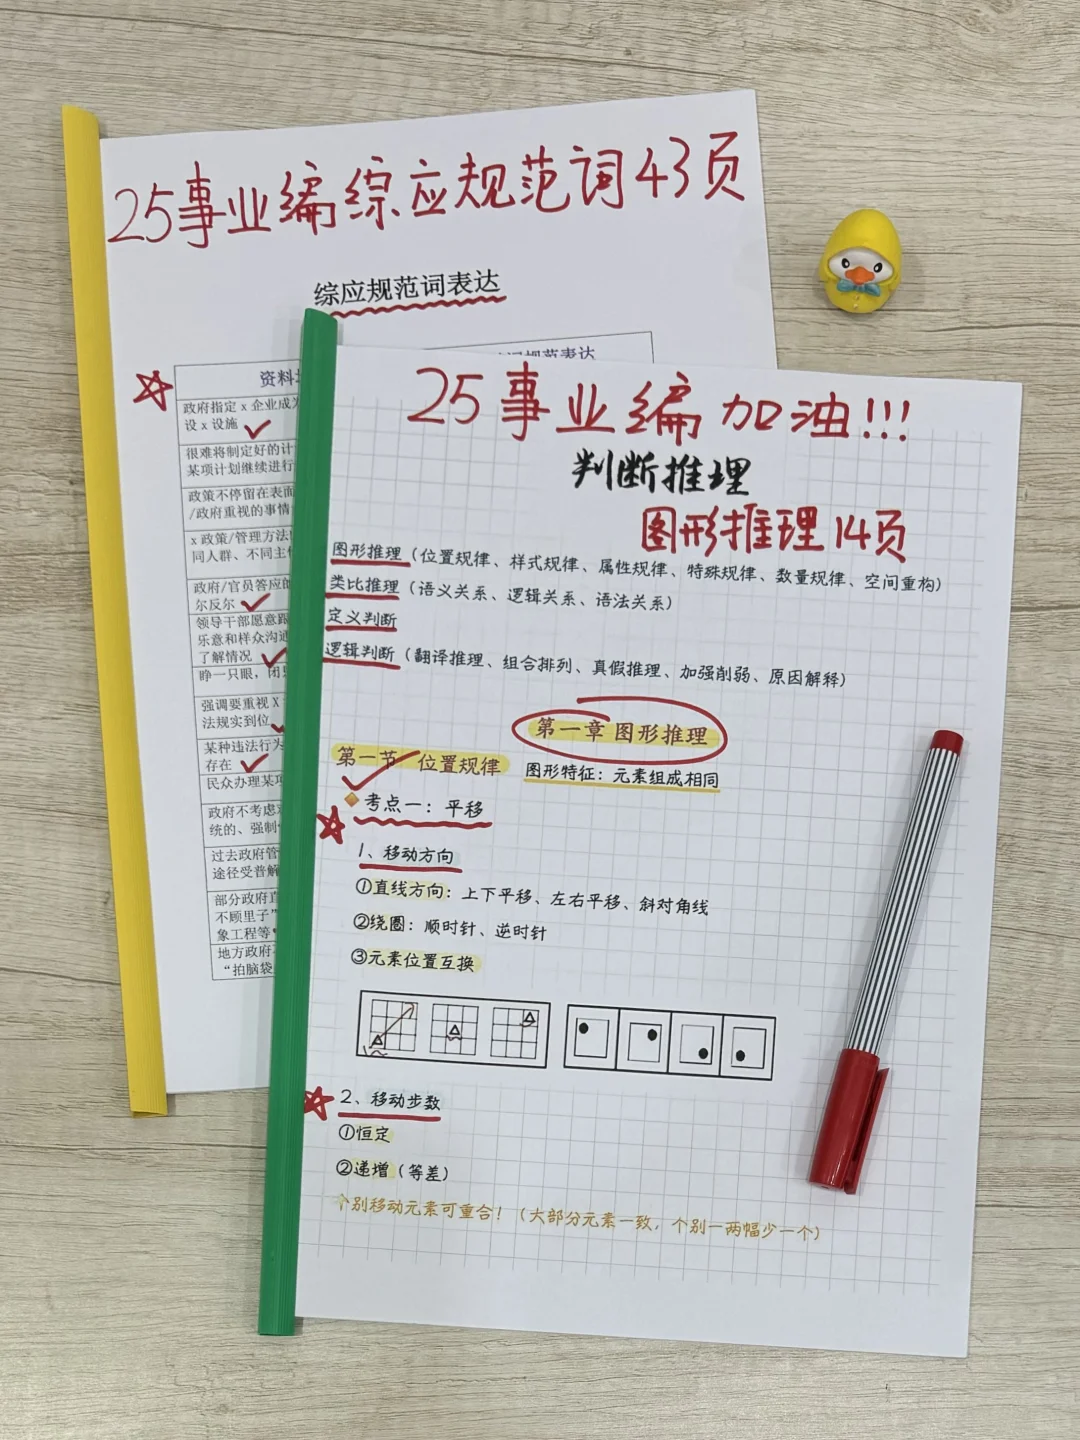 25事业编综应规范词43页
综应规范词表达
资料
规范表达
政府指定 x 企业成为
设 x 设施
很难将制定好的计
某项计划继续进行
政策不停留在表面
/政府重视的事情
x 政策/管理方法
同人群、不同主
政府/官员答应的
尔反尔
领导干部愿意跟
乐意和群众沟通
了解情况
睁一只眼，闭
强调要重视 X
法规实到位
某种违法行为
存在
民众办理某项
政府不考虑
统的、强制
过去政府管
途径受普
部分政府
不顾里子”
象工程等
地方政府
“拍脑袋
25事业编加油!!!
判断推理
图形推理14页
图形推理（位置规律、样式规律、属性规律、特殊规律、数量规律、空间重构）
类比推理（语义关系、逻辑关系、语法关系）
定义判断
逻辑判断（翻译推理、组合排列、真假推理、加强削弱、原因解释）
第一章 图形推理
第一节 位置规律 图形特征：元素组成相同
考点一：平移
1、移动方向
①直线方向：上下平移、左右平移、斜对角线
②绕圈：顺时针、逆时针
③元素位置互换
2、移动步数
①恒定
②递增（等差）
个别移动元素可重合！（大部分元素一致，个别一两幅少一个）